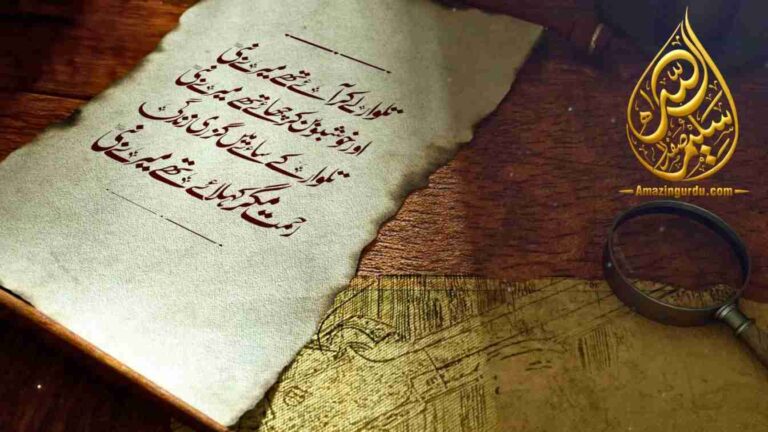 تلوار لے کر آئے تھے میرے نبیؐ
اور خوشبو بن کر چھائے تھے میرے نبیؐ
تلوار کے سائے میں گزری زندگی
رحمت مگر کہلائے تھے میرے نبیؐ
سلیم اللہ صفدر
Amazingurdu.com